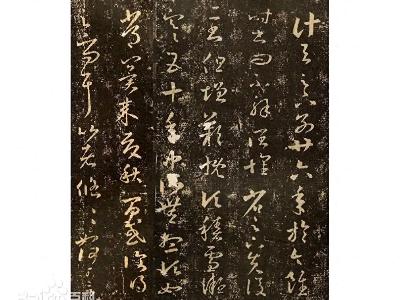 計與足下別廿六年於今雖
時書問不解闊懷省足下先後
二書但增歎慨頃積雪凝
寒五十年中所無想頃如
常冀來夏秋間或復得足
下問耳比者悠悠如何可
百科